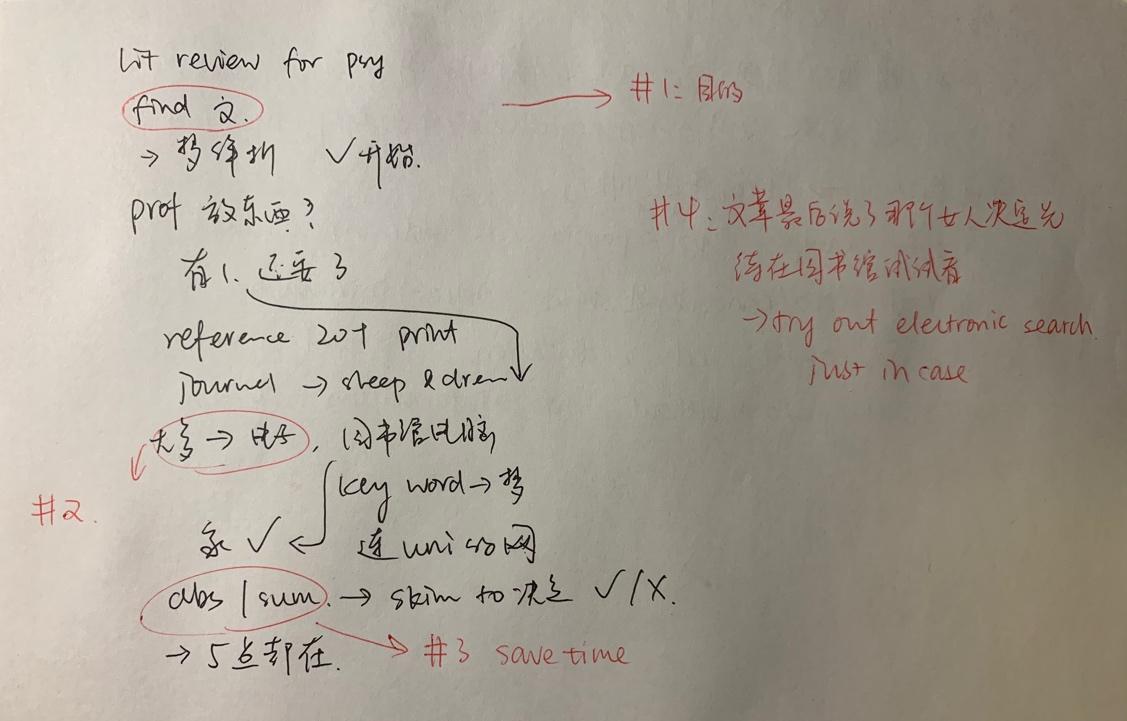 lit review for psy
find 文.
→ 梦 ✓开始.
#1: 目的
prof 放东西?
有1. 还要了
reference 20+ print
journel → sleep & dream
大多 → 电子, 图书馆电脑
#2.
key word → 梦
家 ✓ ← 连 uni 网
abs / sum. → skim to 决定 ✓/X.
→ 5点都在.
#3 save time
#4: 文章最后说了那个女人决定先
待在图书馆试试看
→ try out electronic search
just in case